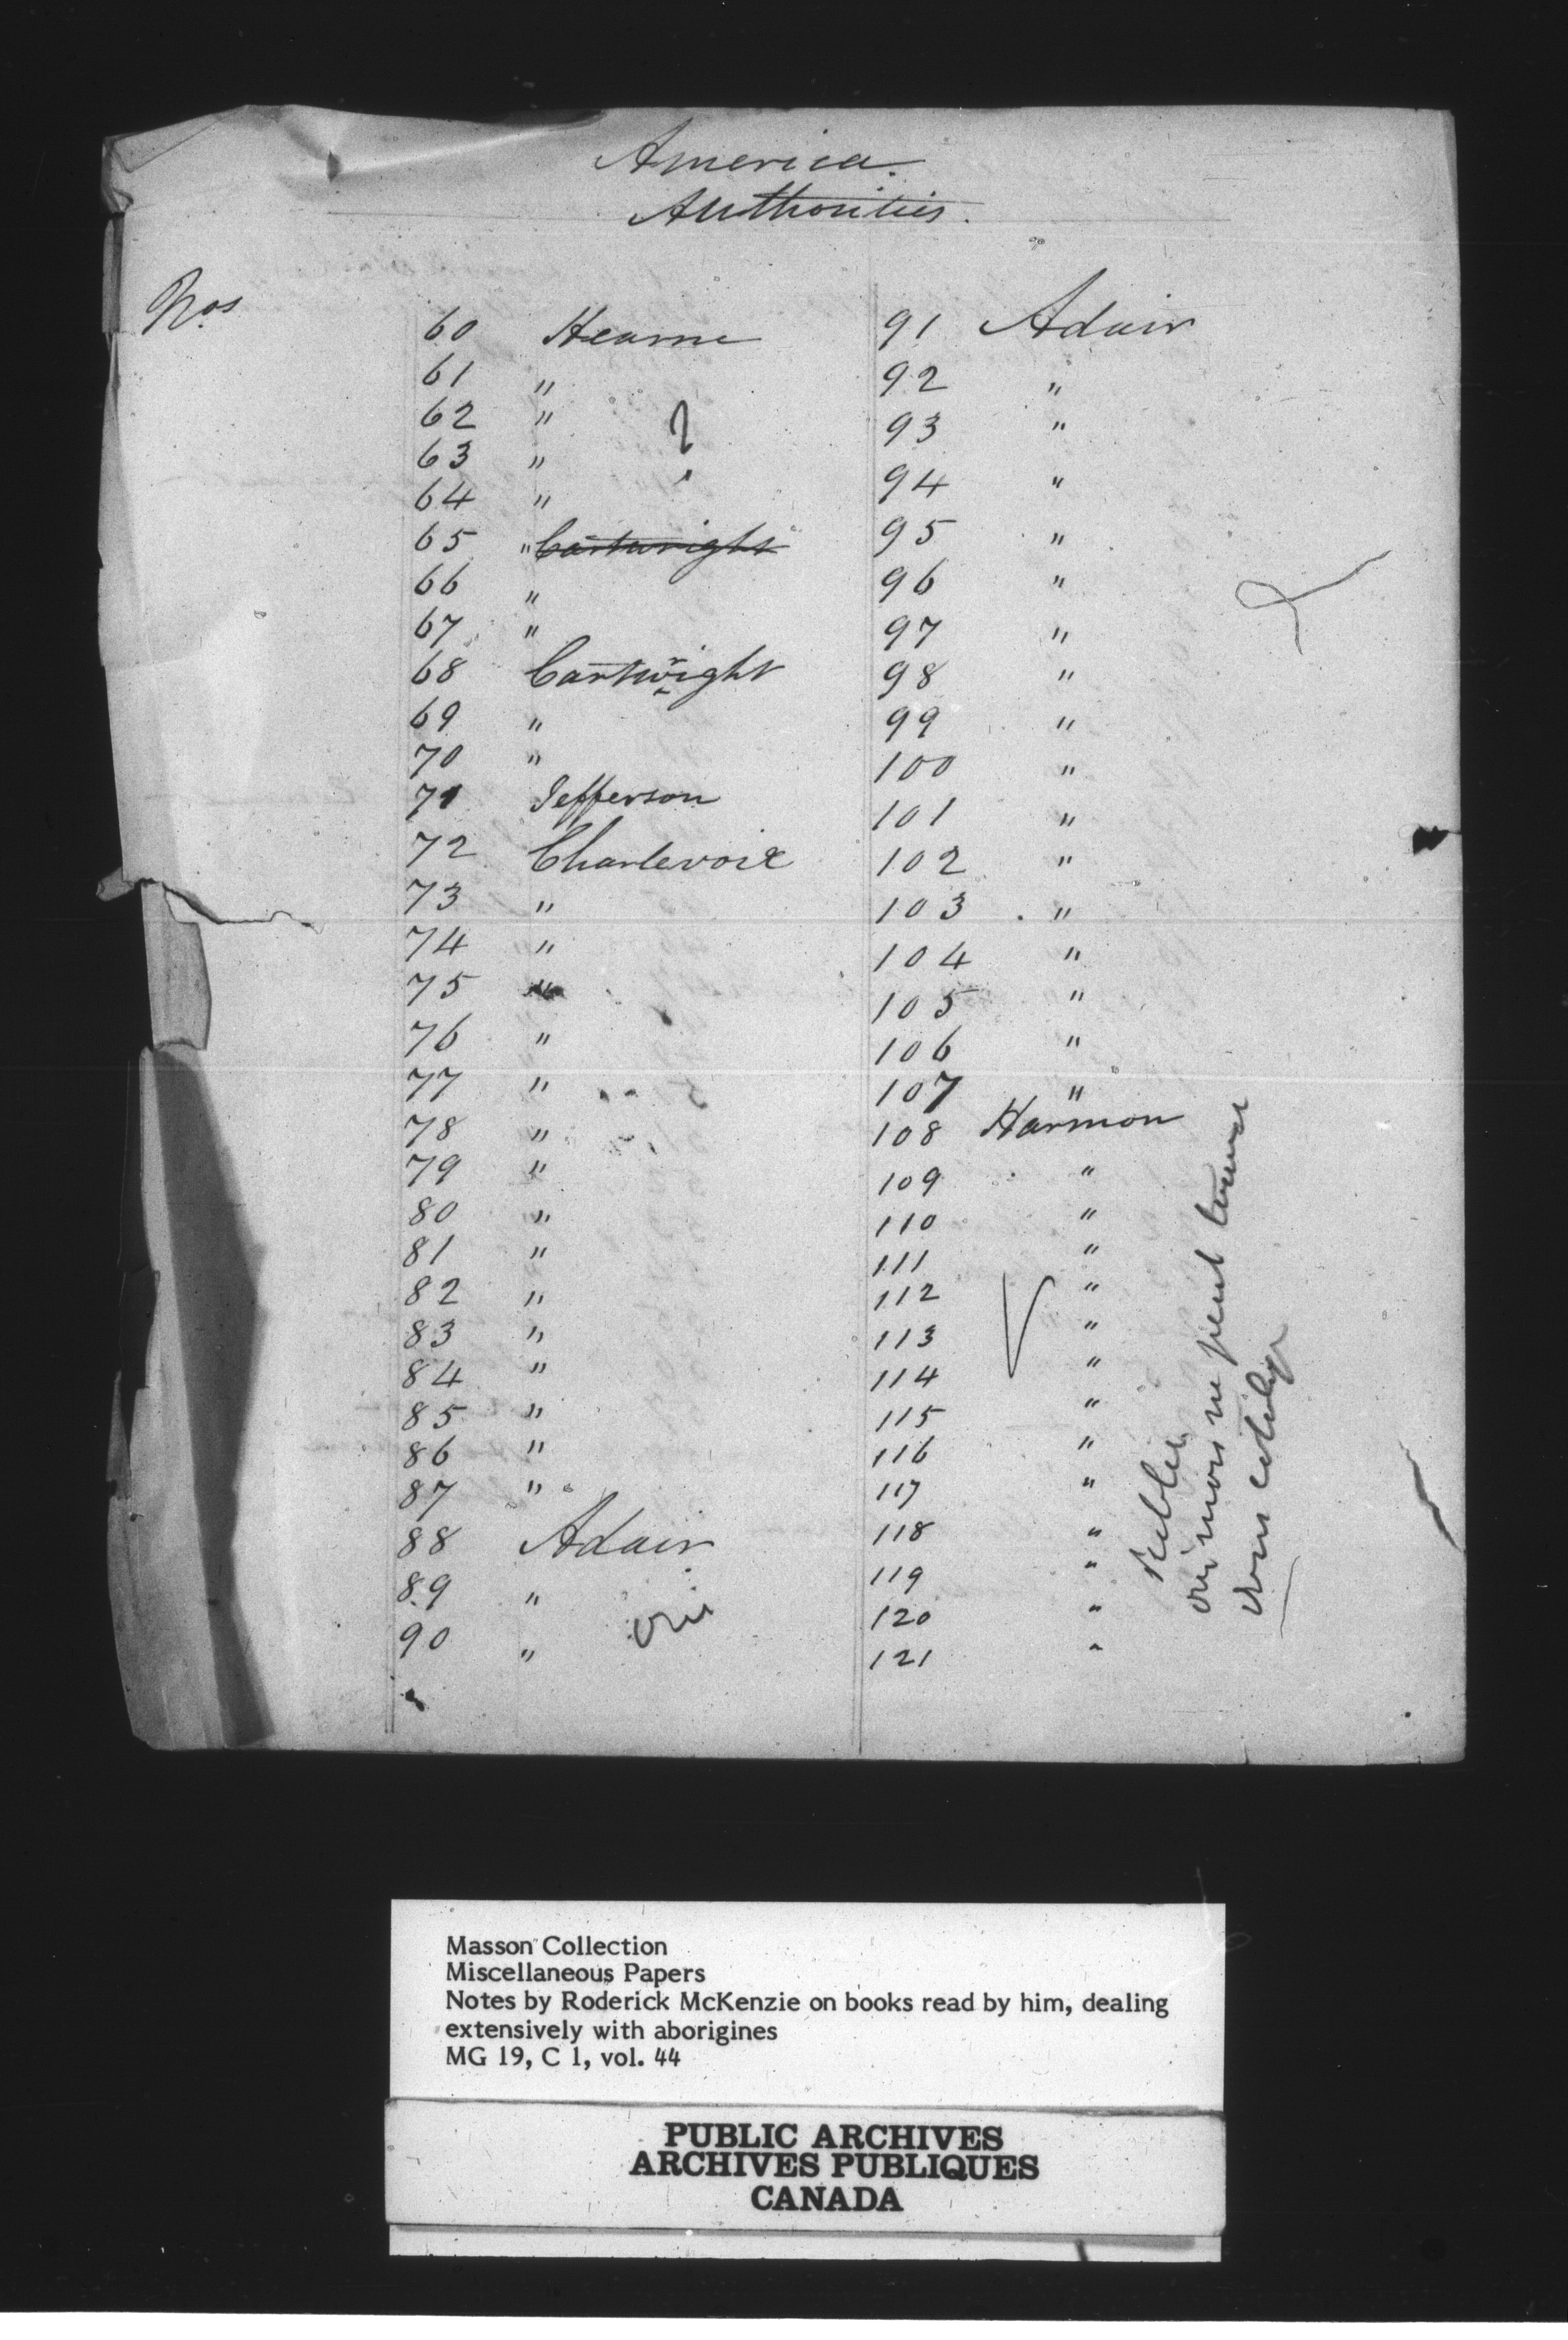 America.
Authorities.
Nos
60 Hearne
61 "
62 " ?
63 "
64 "
65 " Cartwright
66 "
67 "
68 Cartwright
69 "
70 "
71 Jefferson
72 Charlevoix
73 "
74 "
75 "
76 "
77 "
78 "
79 "
80 "
81 "
82 "
83 "
84 "
85 "
86 "
87 "
88 Adair
89 "
90 "
91 Adair
92 "
93 "
94 "
95 "
96 "
97 "
98 "
99 "
100 "
101 "
102 "
103 "
104 "
105 "
106 "
107 "
108 Harmon
109 "
110 "
111 "
112 "
113 "
114 "
115 "
116 "
117 "
118 "
119 "
120 "
121 "
oui
Publié
ne peut
Masson Collection
Miscellaneous Papers
Notes by Roderick McKenzie on books read by him, dealing
extensively with aborigines
MG 19, C 1, vol. 44
PUBLIC ARCHIVES
ARCHIVES PUBLIQUES
CANADA